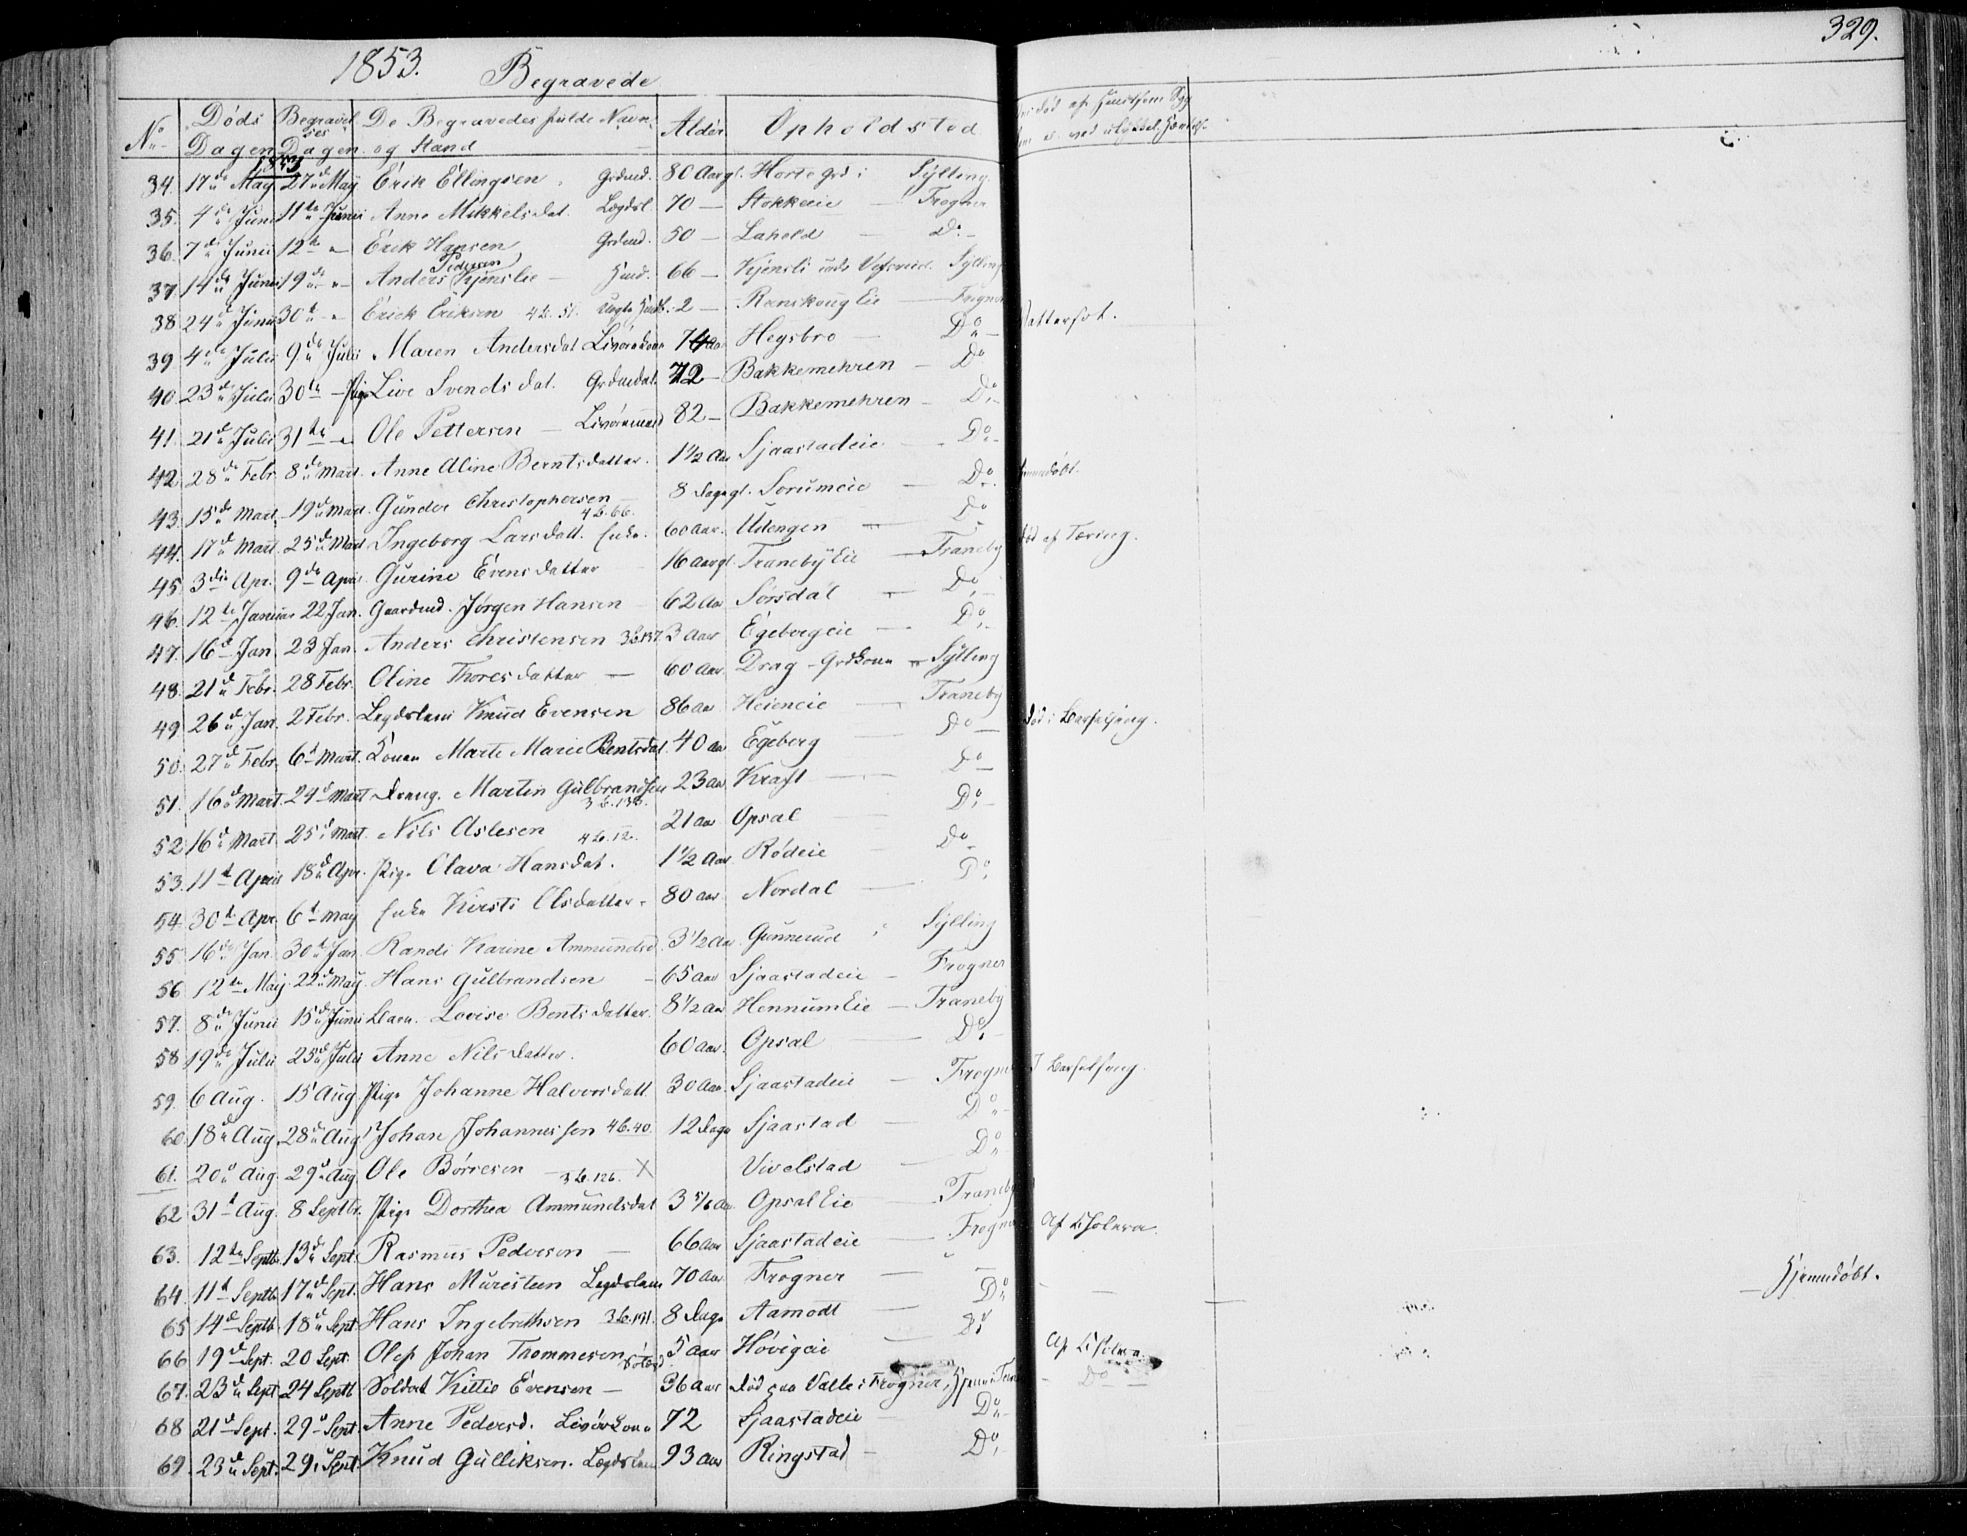 329.
1853. Begravede
No Døds Dagen Begravelses Dagen De Begravedes fulde Navn og Stand Alder Opholdsted
1853
34. 17de May 27de May Erik Ellingsen Grdmd. 80 Aar gl. Horte grd i Sylling
35. 4de Juni 11te Junii Anne Mikkelsdat. Lægdsl. 70 — Stokkeeie — Frogner
36. 7de Junii 12te " Erik Hansen Grdmd. 50 — Laheld — Do —
37. 14de Junii 19de " Anders Pedersen Kjenslie — Huusmd. 66 — Kjensli Sylling
38. 24de Junii 30te " Erick Eriksen 4 L. 51. 2 — Ranskoug Eie — Frogner
39. 4de Julii 9de Julii Maren Andersdat Livørekone 74 Aar Hegsbro — Do —
40. 23de Julii 30te — Pige Live Svendsdat. Grdmdat. 72 — Bakkemehren — Do
41. 21de Julii 31te — Ole Pettersen — Livøremand 82 — Bakkemehren — Do —
42. 28de Febr. 8de Mart. Anne Oline Berntsdatter. 1½ Aar Sjaastadeie — Do —
43. 15de Mart. 19de Mart. Gunder Christophersen — 4 L. 66. 8 Dage gl. Sorumeie — Do. Hjemmedøbt.
44. 17de Mart. 25de Mart. Ingeborg Larsdatt. Enke. 60 Aar. Udengen — Do
45. 3die Apr. 9de April Gurine Evensdatter — 16 Aar gl. Tranebÿ Eie — Traneby Død af Tæring.
46. 12te Januar 22 Jan. Gaardmd. Jørgen Hansen — 62 Aar Sørsdal — Do —
47. 16de Jan. 23 Jan. Anders Christensen 3 L. 137. 3 Aar Egebergeie — Do —
48. 21de Febr. 28 Febr. Oline Thoresdatter — 60 Aar. Drag - Grdkone — Sylling
49. 26de Jan. 2 Febr. Lægdslem Knud Evensen 86 Aar Heieneie — Traneby
50. 27de Febr. 6te Mart. Konen Marte Marie Bentsdat. 40 Aar Egeberg — Do — Død i Barselseng.
51. 16de Mart. 24de Mart Dreng. Martin Gulbrandsen 3 L. 136. 23 Aar Kraft — Do —
52. 16de Mart. 25de Mart. Nils Aslesen 4 L. 12. 21 Aar Opsal — Do —
53. 11te April 18de Apr. Pige Olava Hansdat. 1½ Aar Rødeie — Do —
54. 30te Apr. 6te May Enke Kirsti Olsdatter 80 Aar Nordal — Do
55. 16de Jan. 30te Jan. Randi Karine Ammundsd. 3½ Aar Gunnerud i Sylling
56. 12te May. 22de May. Hans Gulbrandsen — 65 Aar Sjaastadeie — Frogner
57. 8de Junii 15de Junii Barn. Lovise Bentsdatter. 8½ Aar Hennum Eie — Traneby
58. 19de Julii 25de Julii Anne Nilsdatter. 60 Aar. Opsal — Do —
59. 6 Aug. 15 Aug. Pige Johanne Halvorsdatt 30 Aar. Sjaastadeie — Frogner I Barselseng.
60. 18de Aug. 28de Aug. Johan Johannessen 4 L. 40. 12 Dage Sjaastad — Do —
61. 20de Aug. 29de Aug. Ole Børresen — 3 L. 126. X Vivelstad — Do
62. 31te Aug. 8 Septbr. Pige Dorthea Ammundsdat 3 5/6 Aar Opsal Eie — Traneby
63. 12te Septb. 13de Sept. Rasmus Pedersen — 66 Aar Sjaastadeie — Frogner Af Cholera.
64. 11te Septb. 17de Sept. Hans Muresteen Lægdslem 70 Aar Frogner — —
65. 14de Septb. 18de Sept. Hans Ingebrethsen 3 L. 191. 8 Dage Aamodt — Do — Hjemmedøbt.
66. 19de Sept. 20 Sept. Oles Johan Trommesen 5 Aar Høvigeie — Do Af Cholera.
67. 23de Sept. 24 Septb Soldat Kittil Evensen — 36 Aar død paa Valle i Frogner, Do —
68. 21de Sept. 29de Sept. Anne Pedersd. Livørkone 72 Sjaastadeie — Do —
69. 23de Sept. 29de Sept. Knud Gulliksen. Lægdslem 93 Aar Ringstad — Do —